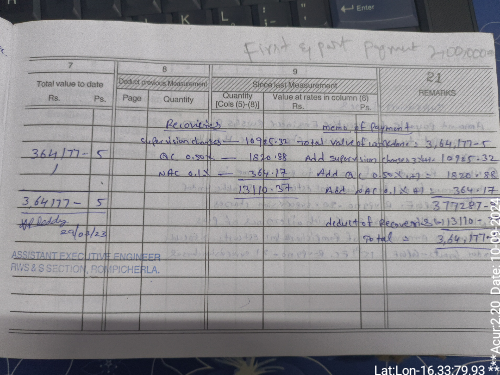 Enter
First & part Payment 2,00,000.00
7
8
9
21
Total value to date
Rs. Ps.
Deduct previous Measurement
Page Quantity
Since last Measurement
Quantity
[Cols (5)-(8)]
Value at rates in column (6)
Rs. Ps.
REMARKS
Recoveries memo of Payment
Supervision charges - 10925.32 Total value of workdone = 3,64,177-5
364177-5 QC 0.50% - 1820.88 Add Supervision charges 3% = 10925.32
NAC 0.1% - 364.17 Add QC 0.50% = 1820.88
13110.37 Add NAC 0.1% = 364.17
3,64,177-5 377287-
deduct of recoveries = 13110-3
29/03/23 Total = 3,64,177-
ASSISTANT EXECUTIVE ENGINEER
RWS & S SECTION, ROMPICHERLA.
Lat:Lon-16.33:79.93
***Acur:2.20 Date: 10-09-202